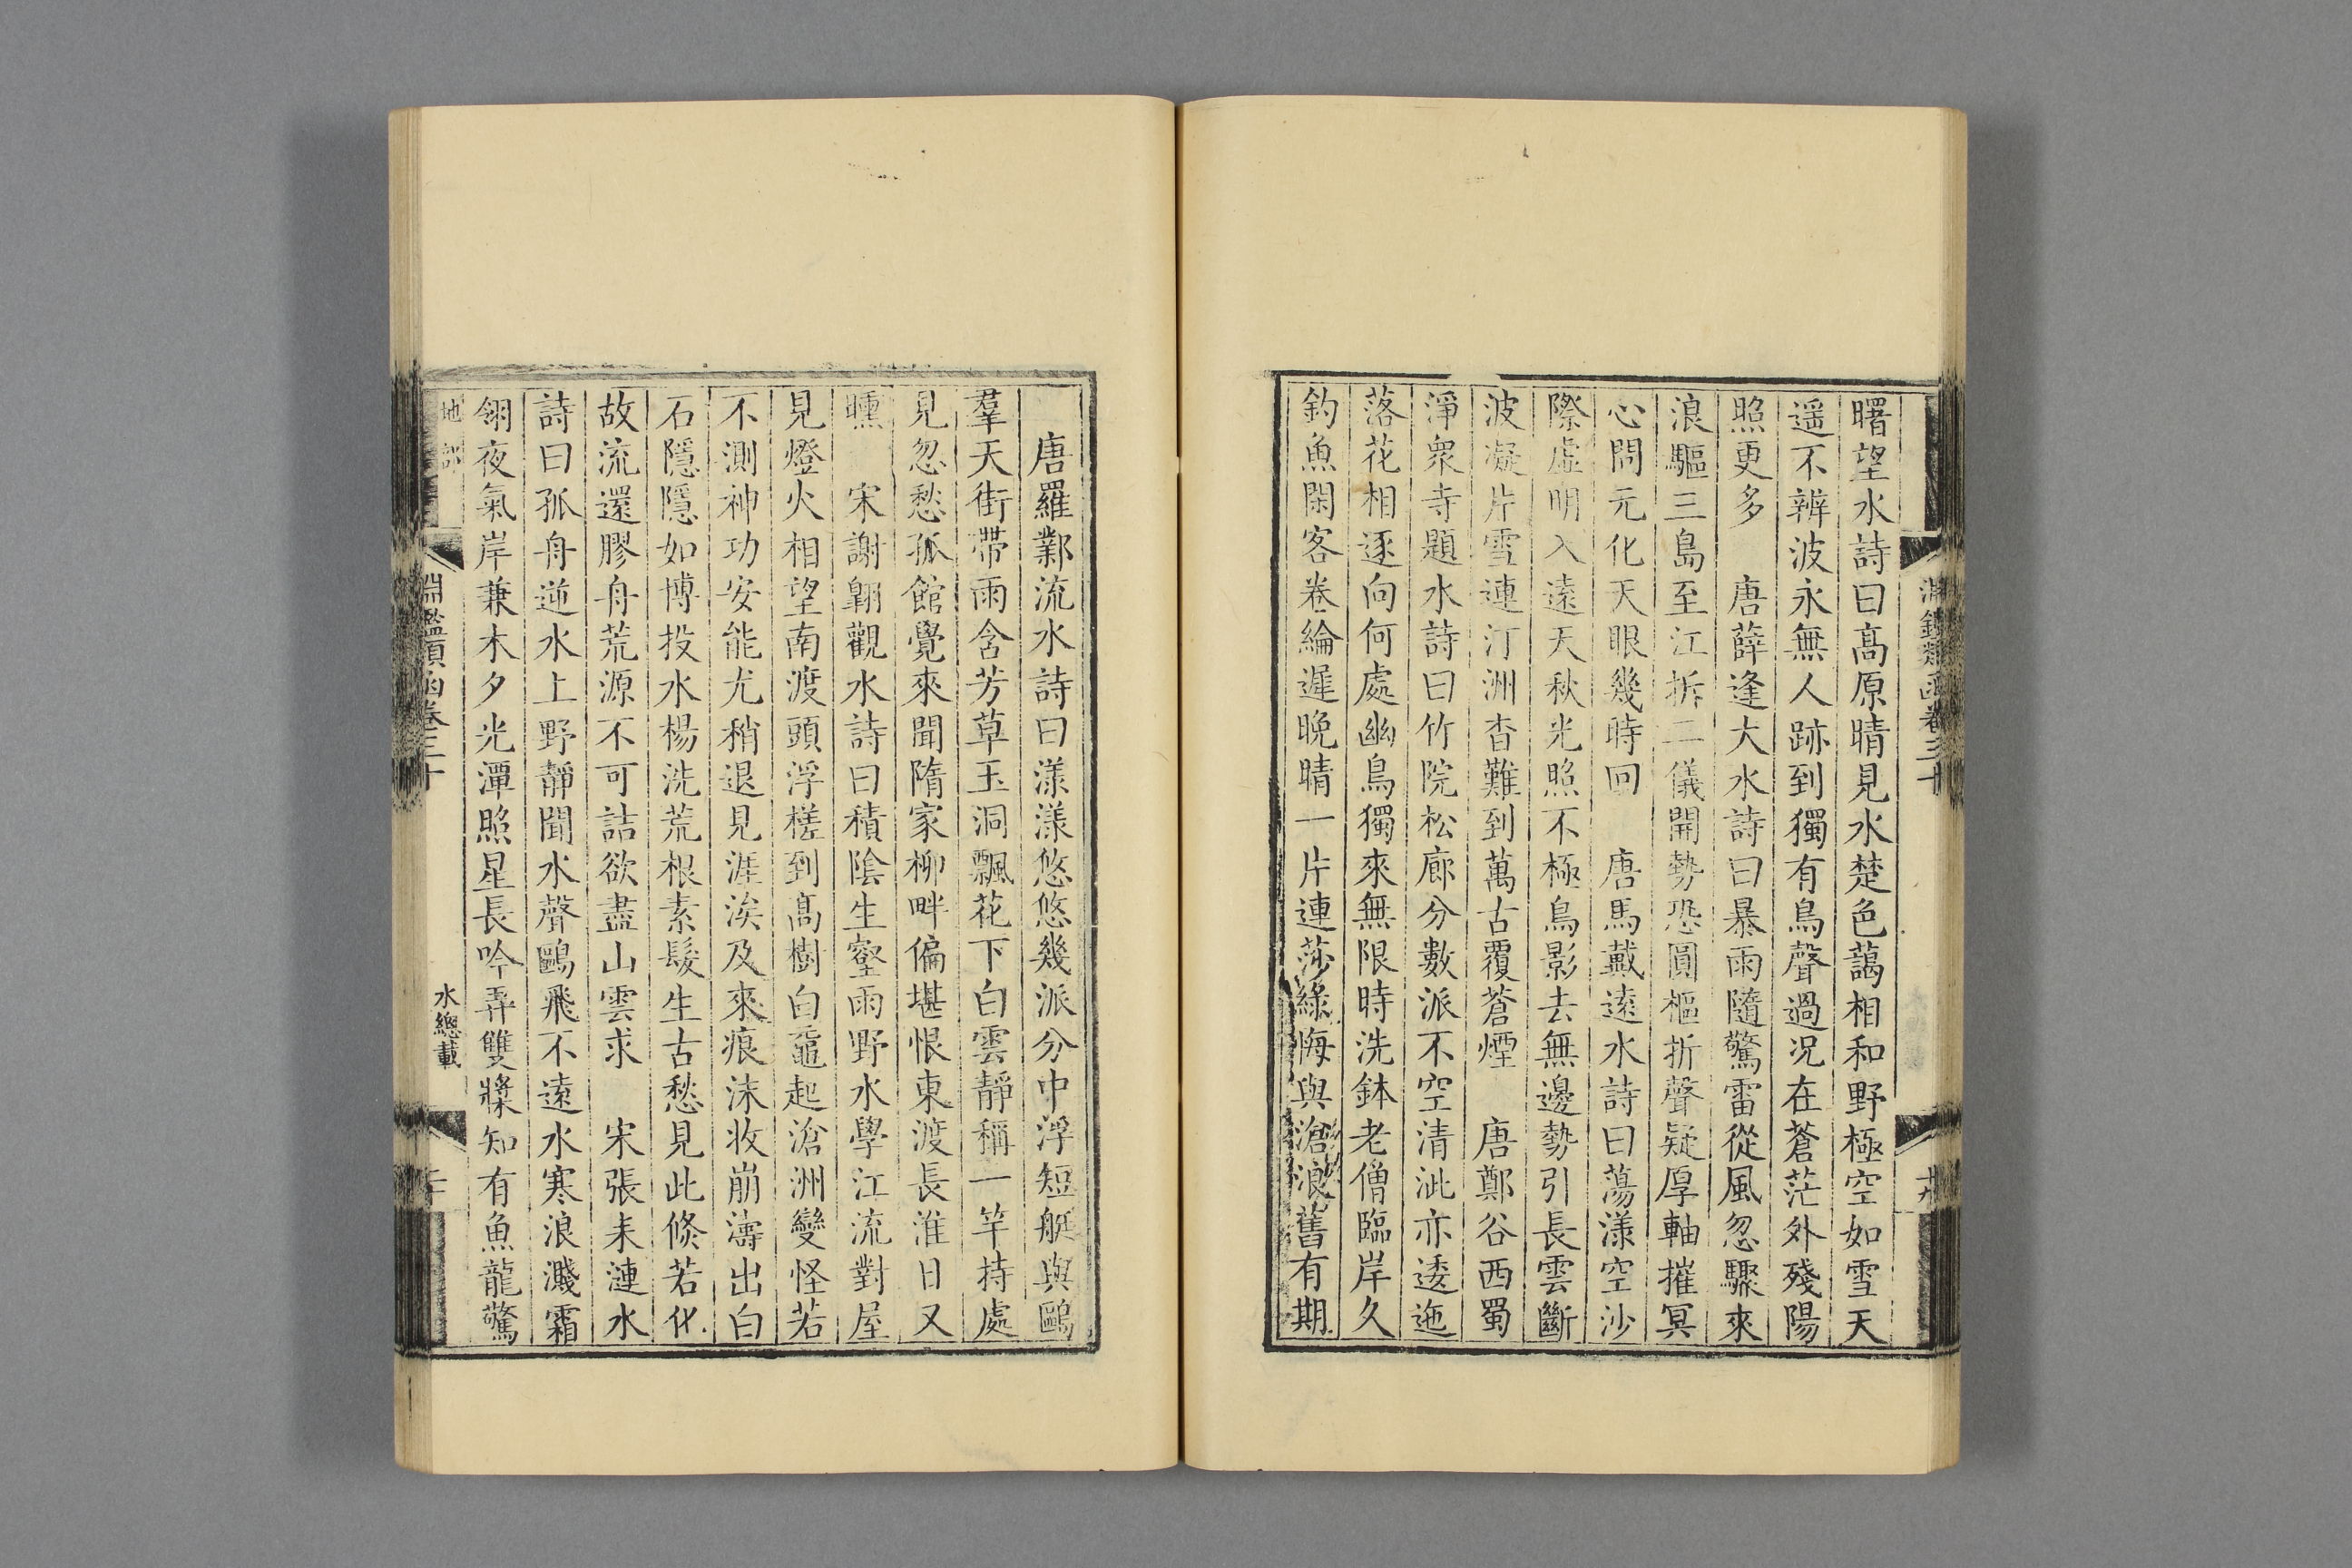 淵鑑類函卷三十
曙望水詩曰高原晴見水楚色藹相和野極空如雪天
遥不辨波永無人跡到獨有鳥聲過况在蒼茫外殘陽
照更多　唐薛逢大水詩曰暴雨隨驚雷從風忽驟來
浪驅三島至江拆二儀開勢恐圓樞折聲疑厚軸摧冥
心問元化天眼幾時回　唐馬戴遠水詩曰蕩漾空沙
際虛明入遠天秋光照不極鳥影去無邊勢引長雲斷
波凝片雪連汀洲杳難到萬古覆蒼煙　唐鄭谷西蜀
淨衆寺題水詩曰竹院松廊分數派不空清泚亦逶迤
落花相逐向何處幽鳥獨來無限時洗鉢老僧臨岸久
釣魚閑客卷綸遲晚晴一片連莎綠悔與滄浪舊有期
唐羅鄴流水詩曰漾漾悠悠幾派分中浮短艇與鷗
羣天街帶雨含芳草玉洞飄花下白雲靜稱一竿持處
見忽愁孤館覺來聞隋家柳畔偏堪恨東渡長淮日又
曛　宋謝翱觀水詩曰積陰生壑雨野水學江流對屋
見燈火相望南渡頭浮槎到高樹白黿起滄洲變怪若
不測神功安能尤稍退見涯涘及來痕沫收崩濤出白
石隱隱如博投水楊洗荒根素髮生古愁見此倏若化
故流還膠舟荒源不可詰欲盡山雲求　宋張耒漣水
詩曰孤舟逆水上野靜聞水聲鷗飛不遠水寒浪濺霜
翎夜氣岸兼木夕光潭照星長吟弄雙槳知有魚龍驚
地部
淵鑑類函卷三十
水總載